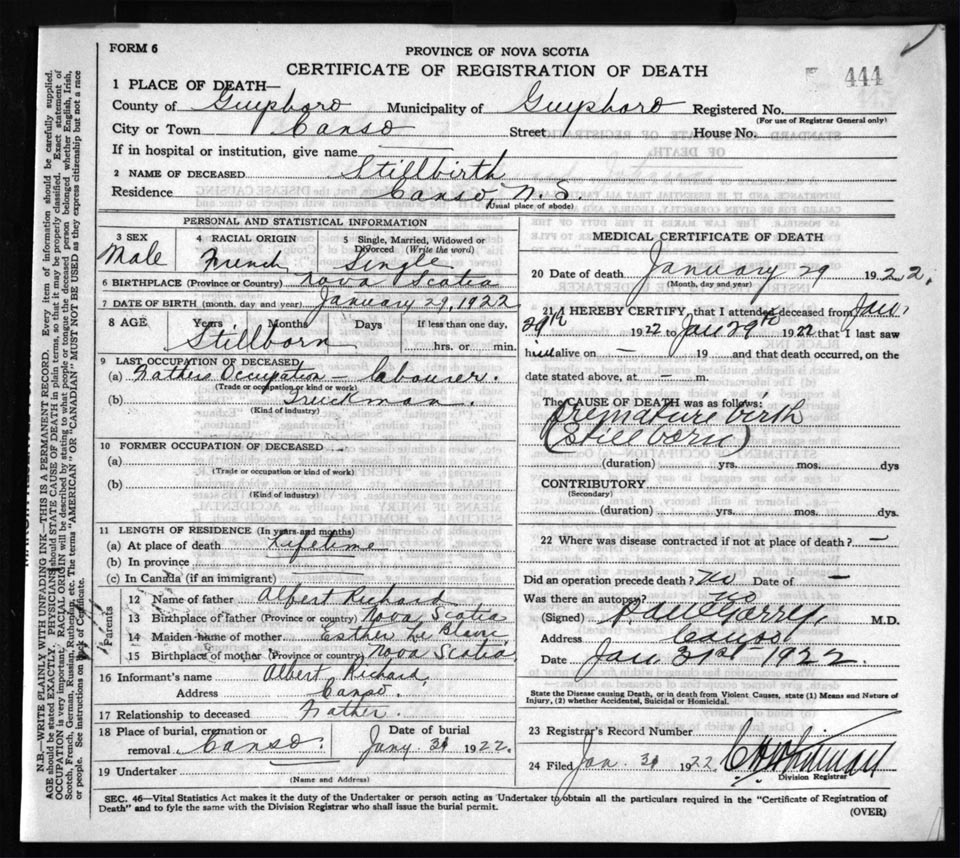 FORM 6
PROVINCE OF NOVA SCOTIA
CERTIFICATE OF REGISTRATION OF DEATH
444
1 PLACE OF DEATH—
County of Guysboro Municipality of Guysboro Registered No.
(For use of Registrar General only)
City or Town Canso Street House No.
If in hospital or institution, give name
2 NAME OF DECEASED Stillbirth
Residence Canso N.S.
(Usual place of abode)
PERSONAL AND STATISTICAL INFORMATION
3 SEX Male
4 RACIAL ORIGIN French
5 Single, Married, Widowed or Divorced (Write the word) Single
6 BIRTHPLACE (Province or Country) Nova Scotia
7 DATE OF BIRTH (month, day and year) January 29, 1922
8 AGE Years Months Days If less than one day,
Stillborn hrs. or min.
9 LAST OCCUPATION OF DECEASED
(a) Fathers Occupation — labourer.
(Trade or occupation or kind of work)
(b) Truckman.
(Kind of industry)
10 FORMER OCCUPATION OF DECEASED
(a)
(Trade or occupation or kind of work)
(b)
(Kind of industry)
11 LENGTH OF RESIDENCE (In years and months)
(a) At place of death Lifetime
(b) In province
(c) In Canada (if an immigrant)
Parents
12 Name of father Albert Richard
13 Birthplace of father (Province or country) Nova Scotia
14 Maiden name of mother Esther
15 Birthplace of mother (Province or country) Nova Scotia
16 Informant's name Albert Richard,
Address Canso.
17 Relationship to deceased Father.
18 Place of burial, cremation or removal Canso. Date of burial Jany. 31 1922.
19 Undertaker
(Name and Address)
MEDICAL CERTIFICATE OF DEATH
20 Date of death January 29 1922.
(Month, day and year)
21 I HEREBY CERTIFY, that I attended deceased from Jan.
29th 1922 to Jan 29th 1922 that I last saw
him alive on — 19 and that death occurred, on the
date stated above, at — m.
The CAUSE OF DEATH was as follows:
Premature birth
(Still born)
(duration) yrs. mos. dys
CONTRIBUTORY
(Secondary)
(duration) yrs. mos. dys.
22 Where was disease contracted if not at place of death? —
Did an operation precede death? No Date of —
Was there an autopsy? no
(Signed) M.D.
Address Canso
Date Jan 31st 1922.
State the Disease causing Death, or in death from Violent Causes, state (1) Means and Nature of
Injury, (2) whether Accidental, Suicidal or Homicidal.
23 Registrar's Record Number
24 Filed Jan. 31 1922
Division Registrar
SEC. 46—Vital Statistics Act makes it the duty of the Undertaker or person acting as Undertaker to obtain all the particulars required in the "Certificate of Registration of
Death" and to fyle the same with the Division Registrar who shall issue the burial permit.
(OVER)
N.B.—WRITE PLAINLY WITH UNFADING INK—THIS IS A PERMANENT RECORD. Every item of information should be carefully supplied.
AGE should be stated EXACTLY. PHYSICIANS should STATE CAUSE OF DEATH in plain terms, so that it may be properly classified. Exact statement of
OCCUPATION is very important. RACIAL ORIGIN will be described by stating to what people or tongue the deceased person belonged whether English, Irish,
Scotch, French, German, Russian, Ruthenian, etc. The terms "AMERICAN" OR "CANADIAN" MUST NOT BE USED as they express citizenship but not a race
or people. See instructions on back of Certificate.